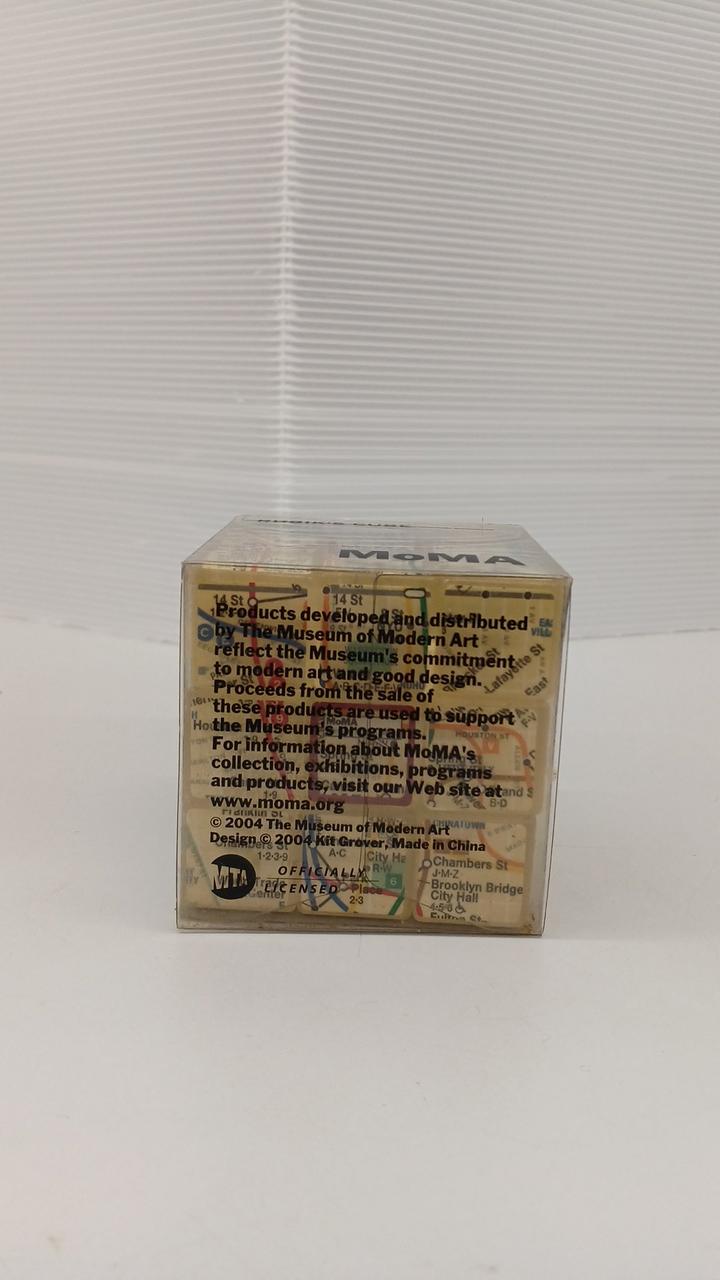 RUBIK'S CUBE
MoMA
Products developed and distributed
by The Museum of Modern Art
reflect the Museum's commitment
to modern art and good design.
Proceeds from the sale of
these products are used to support
the Museum's programs.
For information about MoMA's
collection, exhibitions, programs
and products, visit our Web site at
www.moma.org
© 2004 The Museum of Modern Art
Design © 2004 Kit Grover, Made in China
MTA
OFFICIALLY
LICENSED
14 St
14 St
8 St
NYU
Lafayette St
East
MoMA
HOUSTON ST
Spring St
1·9
B·D
Franklin St
Chambers St
1·2·3·9
A·C
City Ha
R·W
6
Place
2·3
CHINATOWN
Chambers St
J·M·Z
Brooklyn Bridge
City Hall
4·5·6
Fulton St